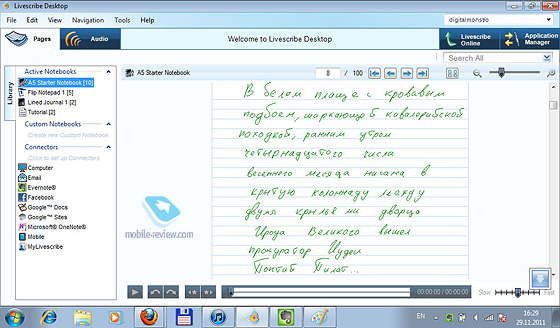 Livescribe Desktop
File Edit View Navigation Tools Help
digitalmonstro
Pages Audio
Welcome to Livescribe Desktop
Livescribe Online
Application Manager
Search All
Library
Active Notebooks
A5 Starter Notebook [10]
Flip Notepad 1 [5]
Lined Journal 1 [2]
Tutorial [2]
Custom Notebooks
Create new Custom Notebook
Connectors
Click to set up Connectors
Computer
Email
Evernote®
Facebook
Google™ Docs
Google™ Sites
Microsoft® OneNote®
Mobile
MyLivescribe
A5 Starter Notebook
8 / 100
В белом плаще с кровавым
подбоем, шаркающей кавалерийской
походкой, ранним утром
четырнадцатого числа
весеннего месяца нисана в
крытую колоннаду между
двумя крыльями дворца
Ирода Великого вышел
прокуратор Иудеи
Понтий Пилат...
mobile-review.com
00:00:00 / 00:00:00
Slow Fast
EN
16:29
29.11.2011